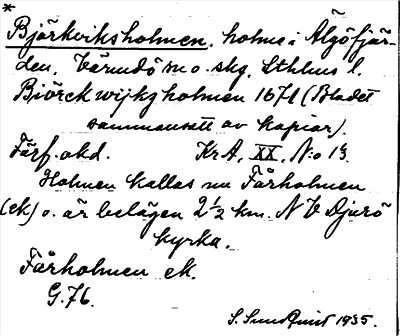 *
Björkviksholmen, holme i Älgöfjär-
den, Värmdö m o. skg, Sthlms l.
Biörck wijkz holmen 1671 (Bladet
sammansatt av kopior).
Förf. okd. KrA, XX, N:o 13.
Holmen kallas nu Fårholmen
(ek) o. är belägen 2 1/2 km. NV Djurö
kyrka.
Fårholmen ek.
G. 76.
S. Sundquist 1935.